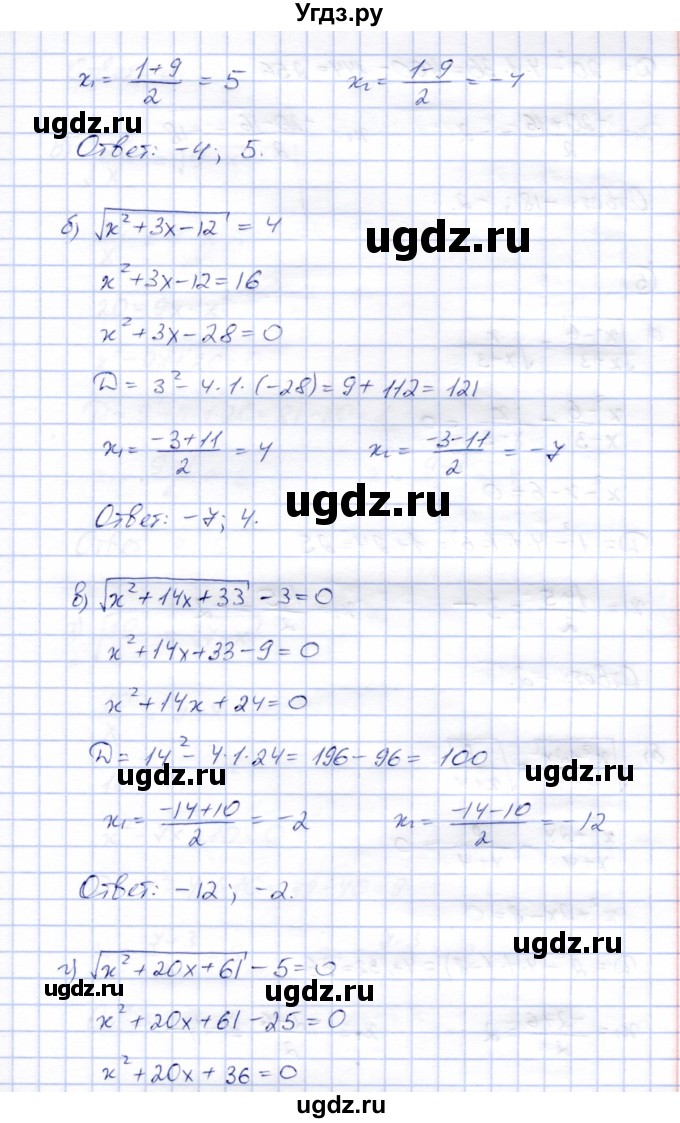 Угдз.ру
x₁ = (1+9)/2 = 5    x₂ = (1-9)/2 = -4
ugdz.ru
Ответ: -4; 5.
б) √(x²+3x-12) = 4
ugdz.ru
x²+3x-12=16
x²+3x-28=0
D = 3²-4·1·(-28)=9+112=121
x₁ = (-3+11)/2 = 4    x₂ = (-3-11)/2 = -7
ugdz.ru
Ответ: -7; 4.
в) √(x²+14x+33) - 3 = 0
x²+14x+33-9=0
x²+14x+24=0
D = 14²-4·1·24=196-96= 100
ugdz.ru ugdz.ru
x₁ = (-14+10)/2 = -2    x₂ = (-14-10)/2 = -12
Ответ: -12; -2.
ugdz.ru
г) √(x²+20x+61) - 5 = 0
ugdz.ru ugdz.ru
x²+20x+61-25=0
x²+20x+36=0
ugdz.ru